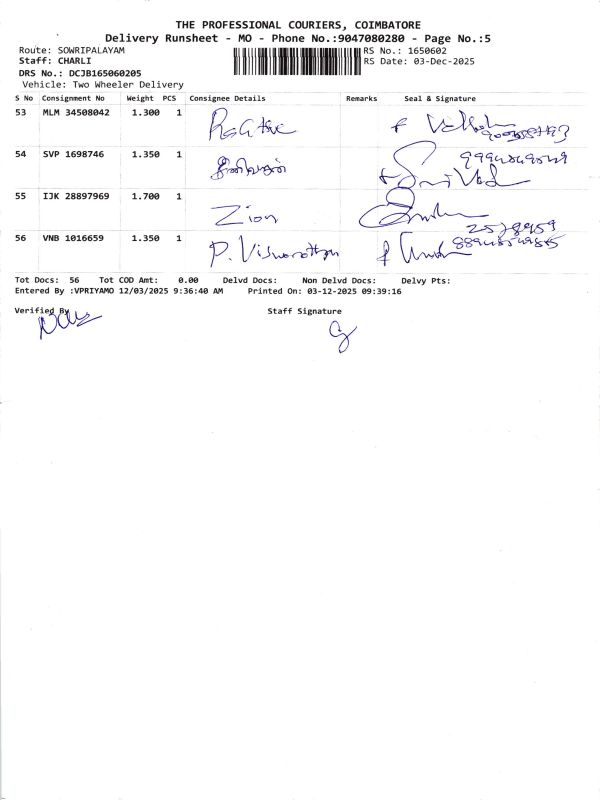 THE PROFESSIONAL COURIERS, COIMBATORE
Delivery Runsheet - MO - Phone No.:9047080280 - Page No.:5
Route: SOWRIPALAYAM RS No.: 1650602
Staff: CHARLI RS Date: 03-Dec-2025
DRS No.: DCJB165060205
Vehicle: Two Wheeler Delivery
S No Consignment No Weight PCS Consignee Details Remarks Seal & Signature
53 MLM 34508042 1.300 1
54 SVP 1698746 1.350 1
55 IJK 28897969 1.700 1 Zion
56 VNB 1016659 1.350 1
Tot Docs: 56 Tot COD Amt: 0.00 Delvd Docs: Non Delvd Docs: Delvy Pts:
Entered By :VPRIYAMO 12/03/2025 9:36:40 AM Printed On: 03-12-2025 09:39:16
Verified By Staff Signature